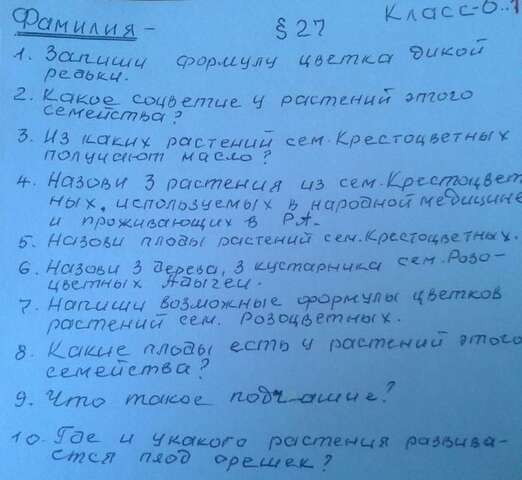 Фамилия - § 27 Класс-6..
1. Запиши формулу цветка дикой
редьки.
2. Какое соцветие у растений этого
семейства?
3. Из каких растений сем. Крестоцветных
получают масло?
4. Назови 3 растения из сем. Крестоцвет
ных, используемых в народной медицине
и проживающих в РА.
5. Назови плоды растений сем. Крестоцветных.
6. Назови 3 дерева, 3 кустарника сем. Розо-
цветных Адыгеи.
7. Напиши возможные формулы цветков
растений сем. Розоцветных.
8. Какие плоды есть у растений этого
семейства?
9. Что такое подчашие?
10. Где и у какого растения развива-
ется плод орешек?